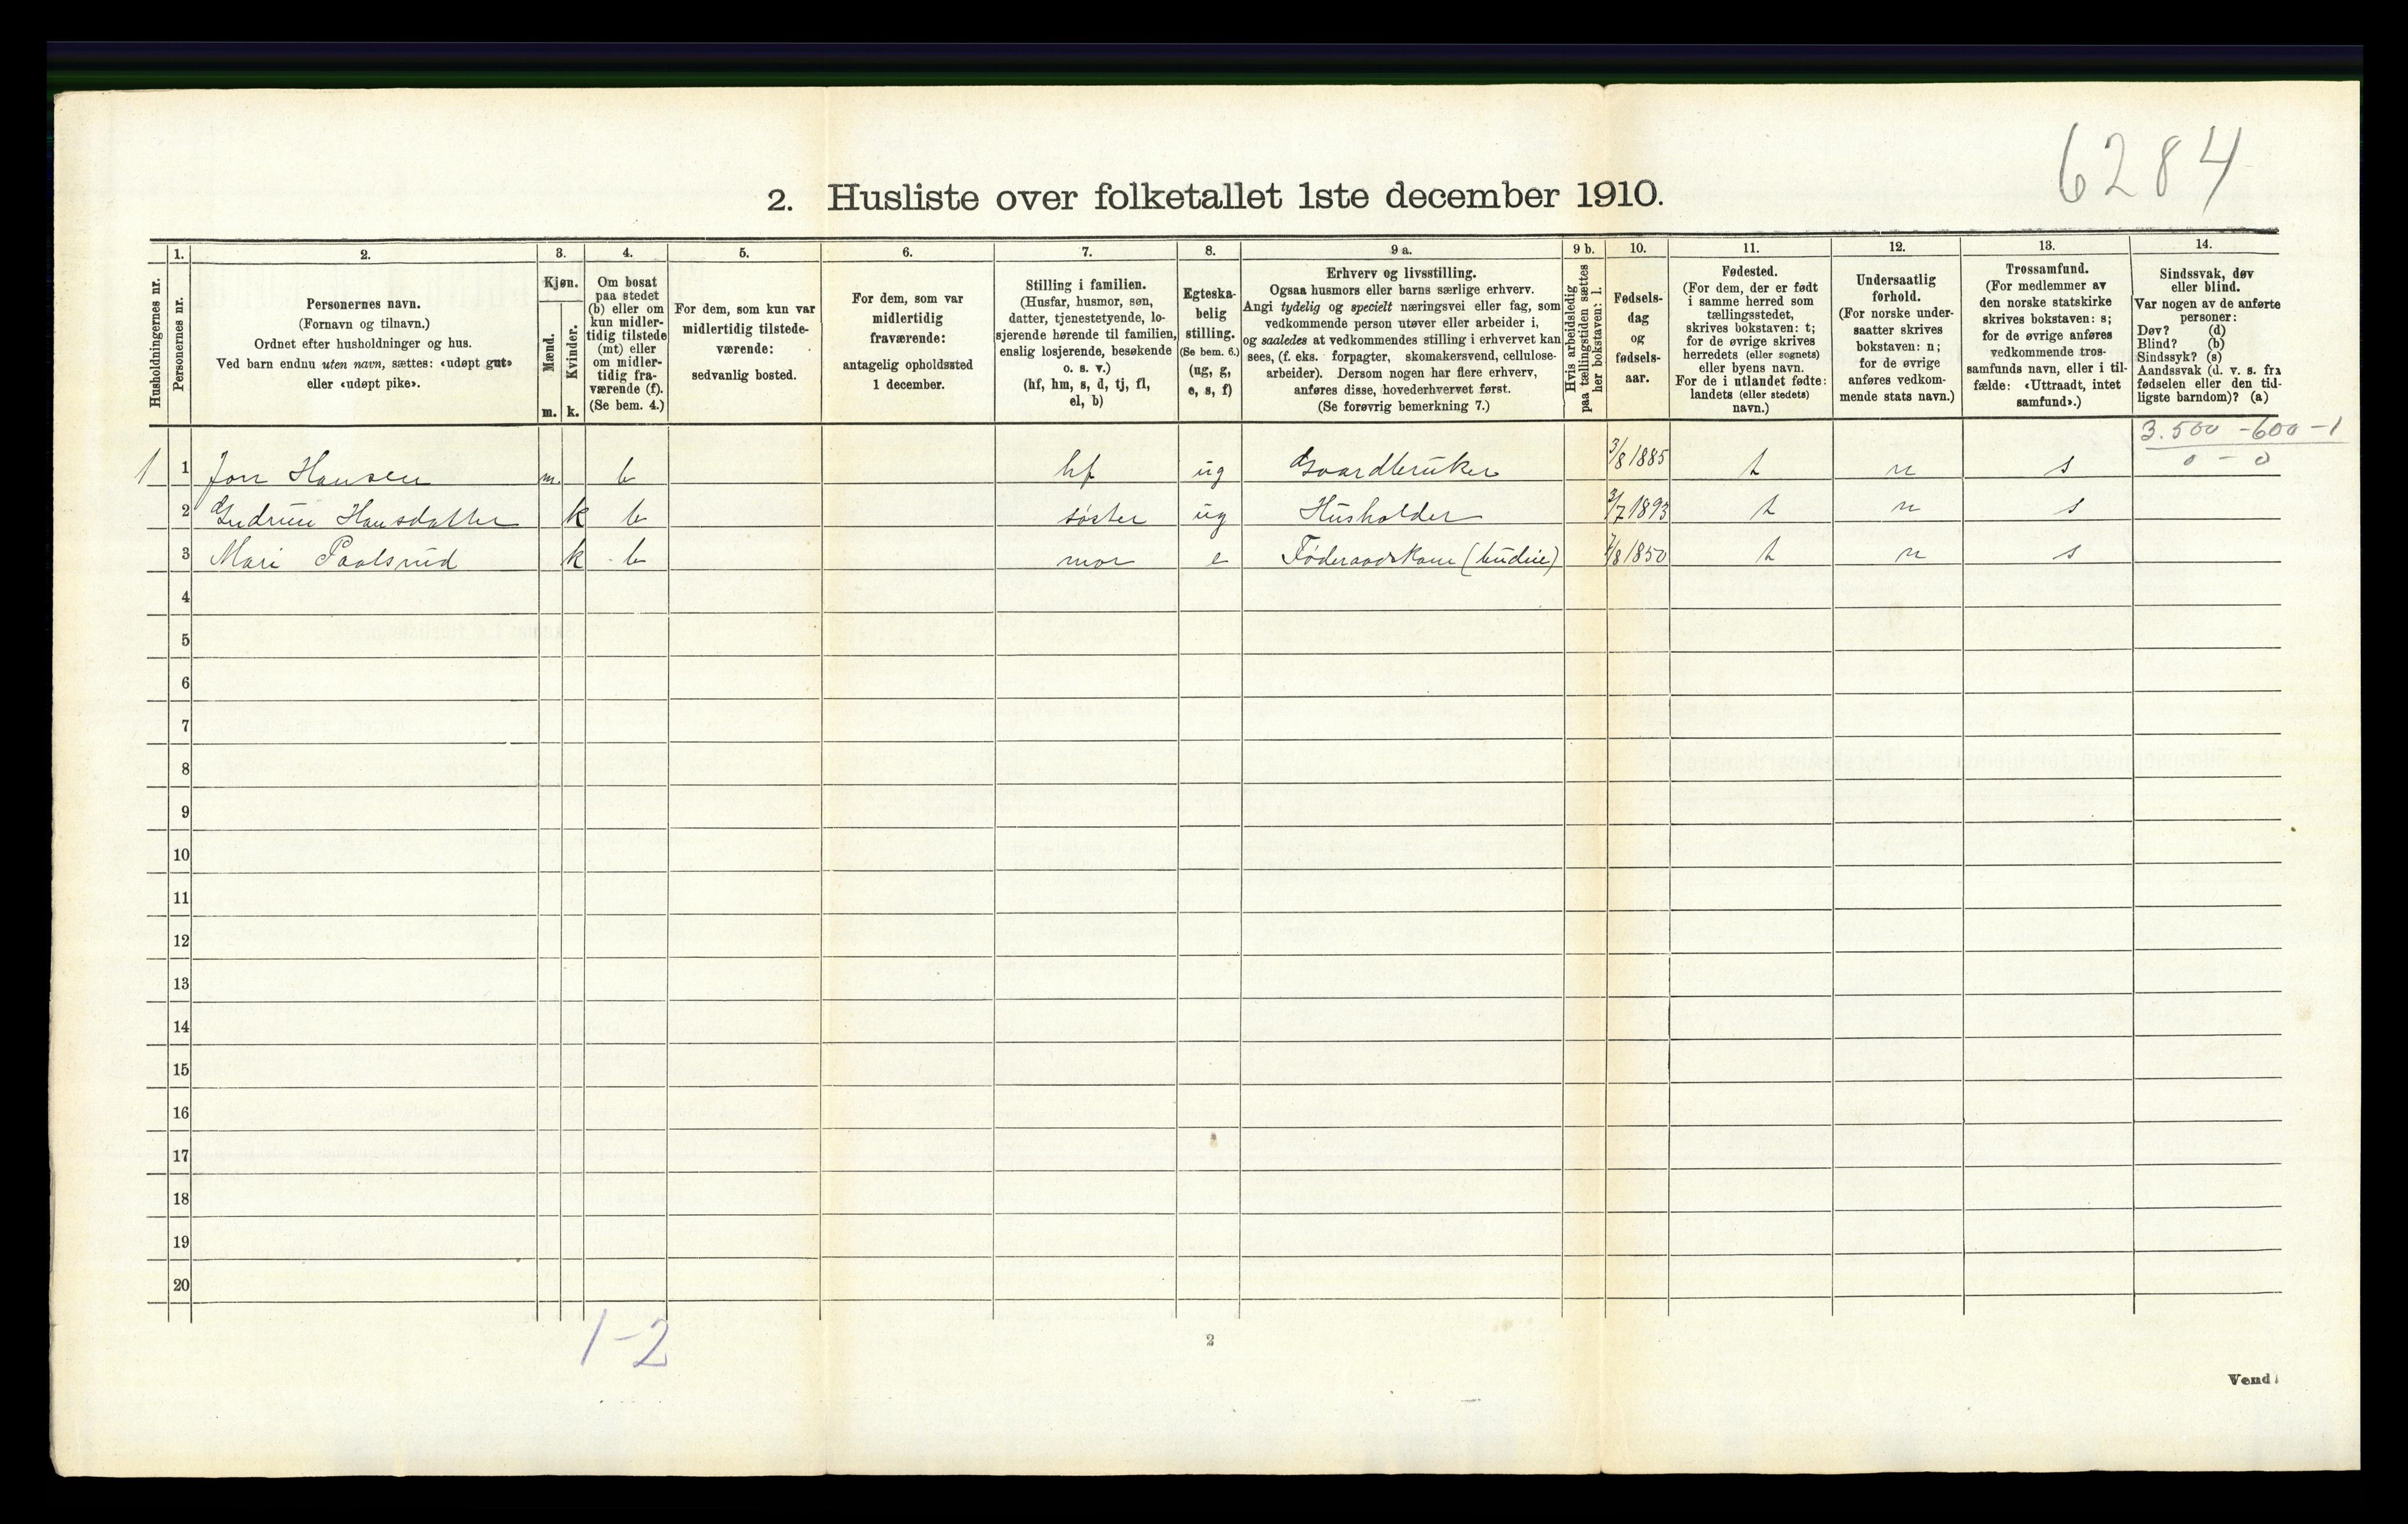 6284
2. Husliste over folketallet 1ste december 1910.
Husholdningernes nr.
1.
Personernes nr.
2.
Personernes navn.
(Fornavn og tilnavn.)
Ordnet efter husholdninger og hus.
Ved barn endnu uten navn, sættes: «udøpt gut»
eller «udøpt pike».
3.
Kjøn.
Mænd.
m.
Kvinder.
k.
4.
Om bosat
paa stedet
(b) eller om
kun midler-
tidig tilstede
(mt) eller
om midler-
tidig fra-
værende (f).
(Se bem. 4.)
5.
For dem, som kun var
midlertidig tilstede-
værende:
sedvanlig bosted.
6.
For dem, som var
midlertidig
fraværende:
antagelig opholdssted
1 december.
7.
Stilling i familien.
(Husfar, husmor, søn,
datter, tjenestetyende, lo-
sjerende hørende til familien,
enslig losjerende, besøkende
o. s. v.)
(hf, hm, s, d, tj, fl,
el, b)
8.
Egteska-
belig
stilling.
(Se bem. 6.)
(ug, g,
e, s, f)
9 a.
Erhverv og livsstilling.
Ogsaa husmors eller barns særlige erhverv.
Angi tydelig og specielt næringsvei eller fag, som
vedkommende person utøver eller arbeider i,
og saaledes at vedkommendes stilling i erhvervet kan
sees, (f. eks. forpagter, skomakersvend, cellulose-
arbeider). Dersom nogen har flere erhverv,
anføres disse, hovederhvervet først.
(Se forøvrig bemerkning 7.)
9 b.
Hvis arbeidsledig
paa tællingstiden sættes
her bokstaven: l.
10.
Fødsels-
dag
og
fødsels-
aar.
11.
Fødested.
(For dem, der er født
i samme herred som
tællingsstedet,
skrives bokstaven: t;
for de øvrige skrives
herredets (eller sognets)
eller byens navn.
For de i utlandet fødte:
landets (eller stedets)
navn.)
12.
Undersaatlig
forhold.
(For norske under-
saatter skrives
bokstaven: n;
for de øvrige
anføres vedkom-
mende stats navn.)
13.
Trossamfund.
(For medlemmer av
den norske statskirke
skrives bokstaven: s;
for de øvrige anføres
vedkommende tros-
samfunds navn, eller i til-
fælde: «Uttraadt, intet
samfund».)
14.
Sindssvak, døv
eller blind.
Var nogen av de anførte
personer:
Døv? (d)
Blind? (b)
Sindssyk? (s)
Aandssvak (d. v. s. fra
fødselen eller den tid-
ligste barndom)? (a)
3.500 - 600 - 1
0 - 0
1 1 Jon Hansen m. b hf ug Gaardbruker 3/8 1885 t n s
2 Gudrun Hansdatter k b søster ug Husholder 3/7 1893 t n s
3 Mari Paalsrud k b mor e Føderaadskone (budeie) 7/8 1850 t n s
4
5
6
7
8
9
10
11
12
13
14
15
16
17
18
19
20
1-2
2
Vend!